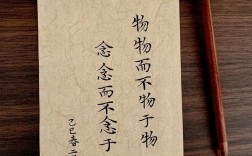 物物而不物于物
念念而不念于
乙巳春二